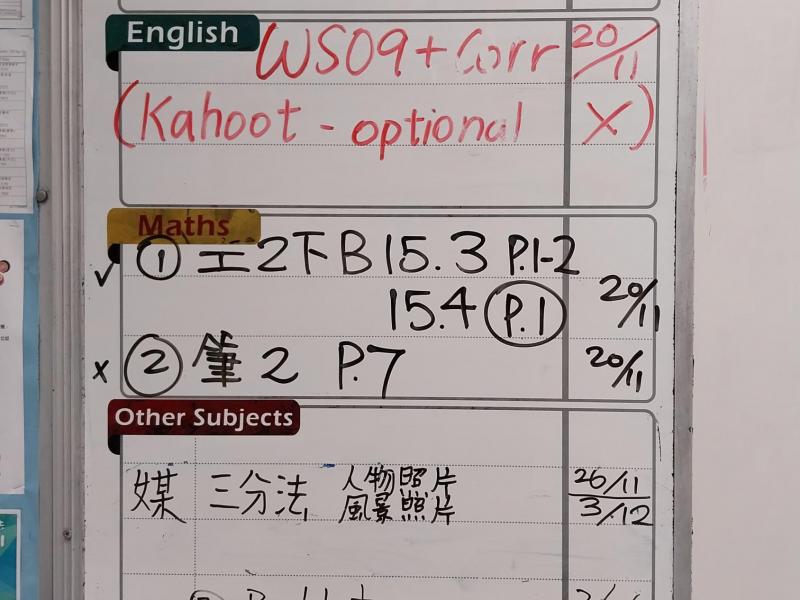 English WS09+Corr 20/11
(Kahoot - optional X)
Maths
✓ ① 工2下B 15.3 P.1-2
15.4 P.1 20/11
x ② 筆2 P.7 20/11
Other Subjects
媒 三分法 人物照片 26/11
風景照片 3/12